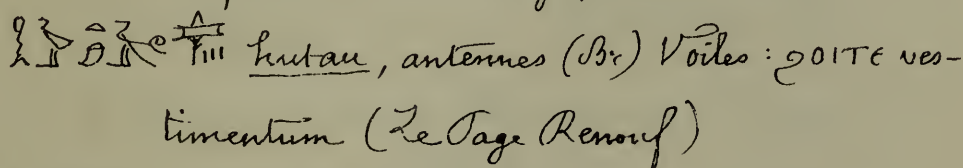 hutau, antennes (Br) Voiles : ϩⲟⲓⲧⲉ ves-
timentum (Le Page Renouf)